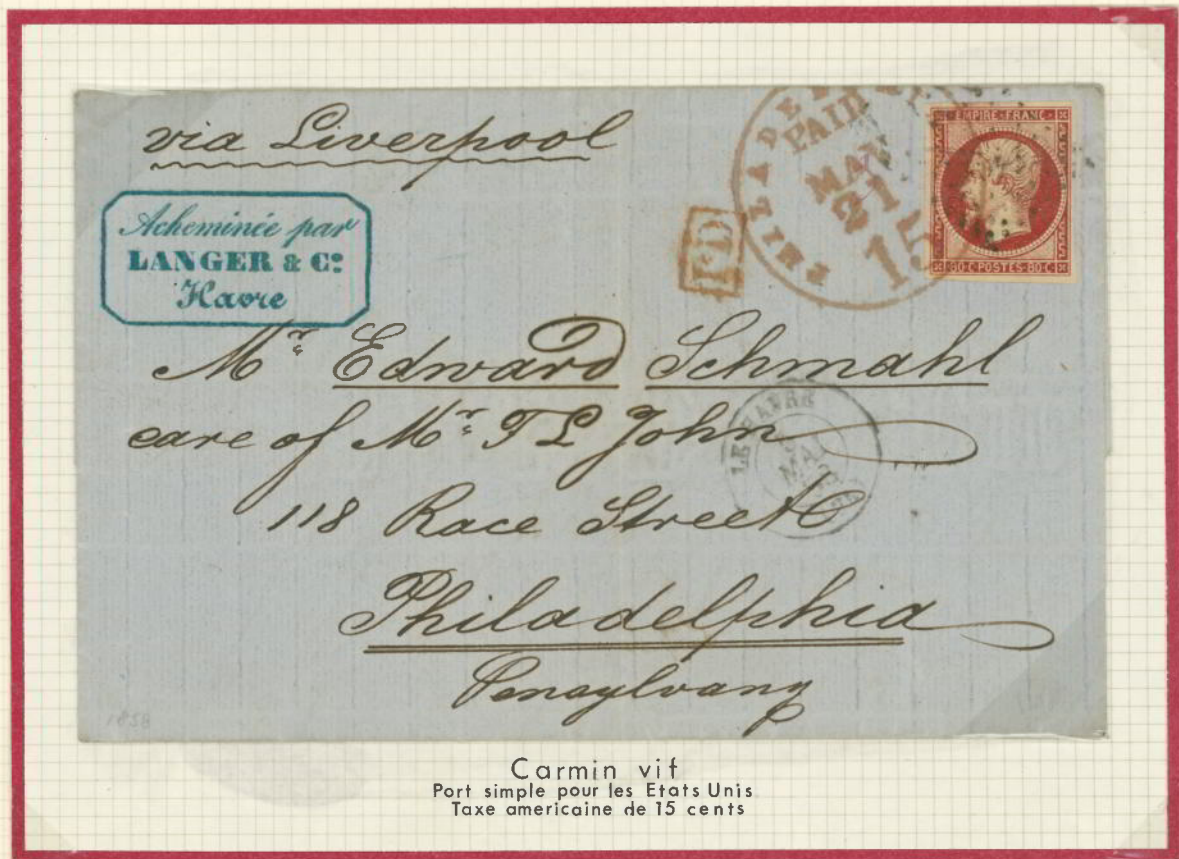 via Liverpool
Acheminée par
LANGER & Cº
Havre
PHILADE
PAID
MAY
21
15
P.D
EMPIRE FRANC
80·C·POSTES·80·C
Mr Edward Schmahl
care of Mr T L John
LE HAVRE
MAI
118 Race Street
Philadelphia
Pensylvany
1858
Carmin vif
Port simple pour les Etats Unis
Taxe americaine de 15 cents